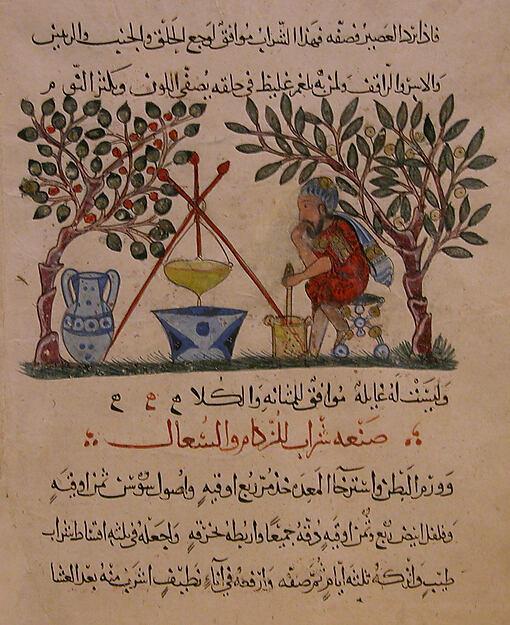 فاذا برد العصير فصفه فهذا الشراب موافق لوجع الحلق والجنب والرئتين
بلغم غليظ في حلقه يصفي اللون ويكثر النوم
وليست له غايلة موافق للمثانة والكلا
صنعه شراب للزكام والسعال
وورم البطن واسترخا المعده خذ مر ربع اوقيه واصول سوسن ثمن اوقيه
وفلفل ابيض ربع وثمن اوقيه دقه جميعا واربطه بخرقه واجعله في ثلثة اقساط شراب
طيب واتركه ثلثه ايام ثم صفه وارفعه في اناء نظيف اشرب منه بعد العشا